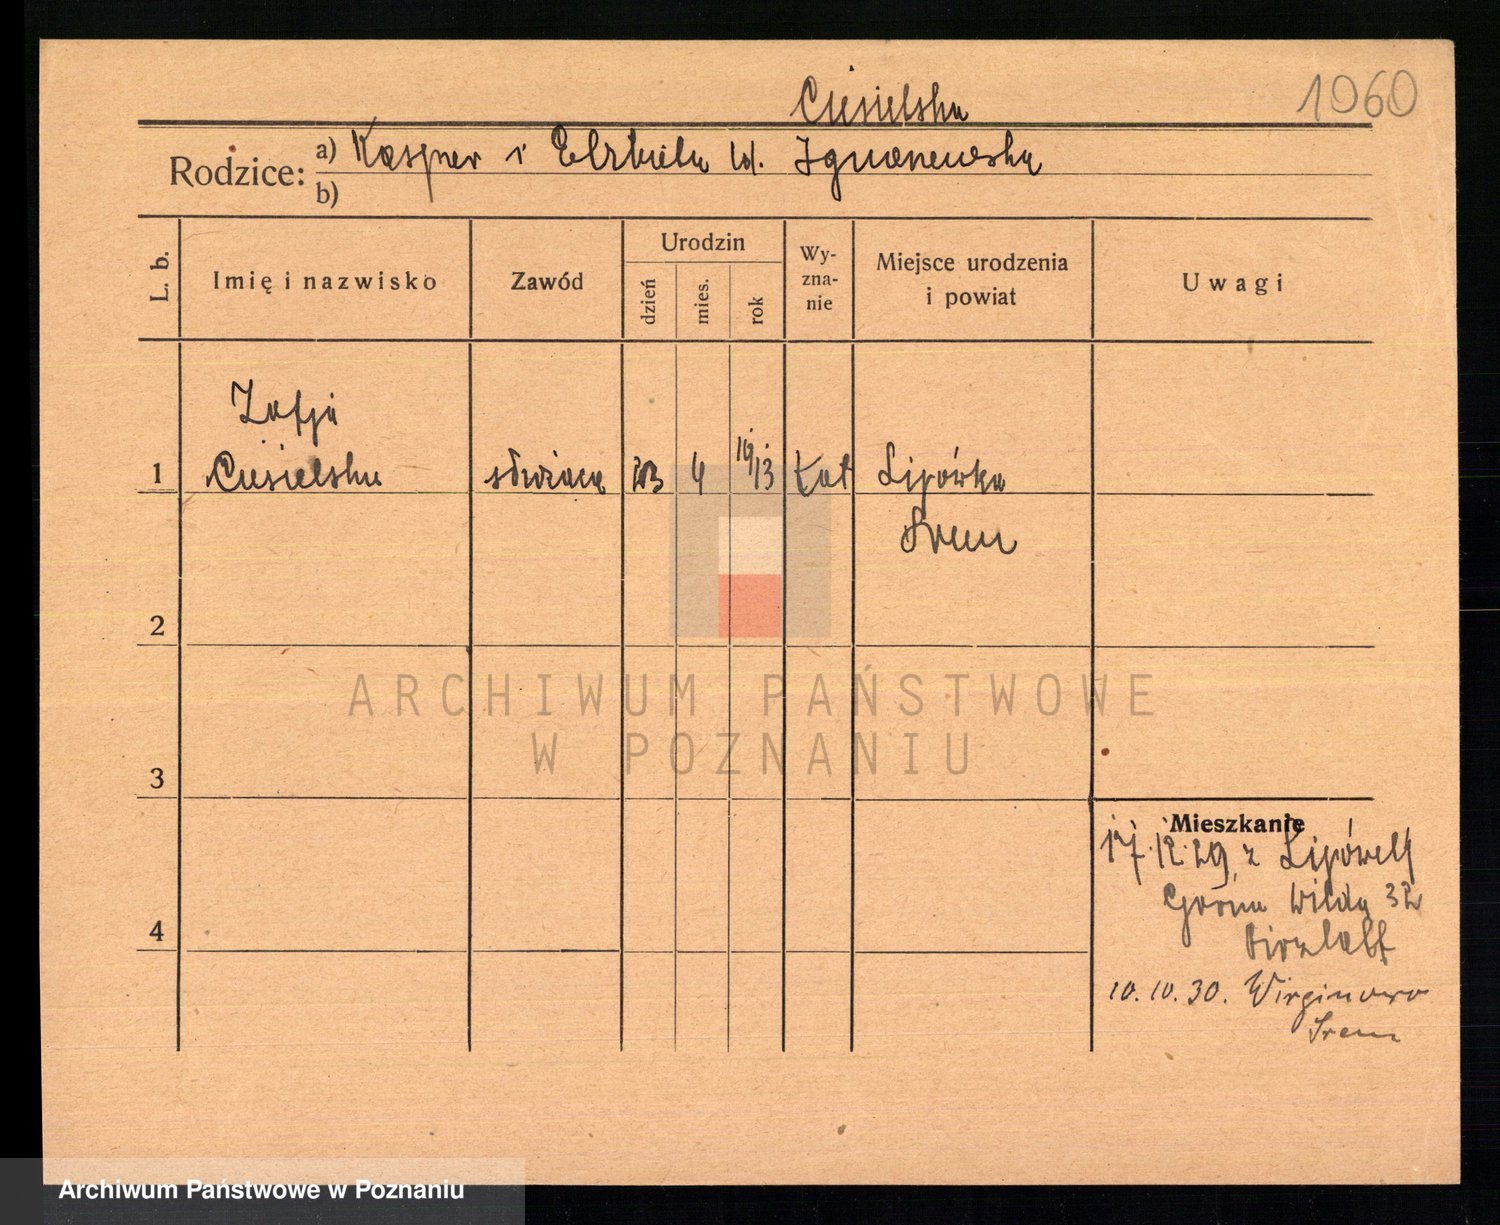 1060
Ciesielska
Rodzice: a) Kasper i Elżbieta td. Ignaszewska
b)
L. b.
Imię i nazwisko
Zawód
Urodzin
dzień
mies.
rok
Wy-
zna-
nie
Miejsce urodzenia
i powiat
Uwagi
Zofja
1 Ciesielska służąca 23 4 1913 kat Lipówka
Śrem
2
ARCHIWUM PAŃSTWOWE
W POZNANIU
3
Mieszkanie
17.12.29 z Lipówki
Górna Wilda 32
10.10.30. Wirginowo
Śrem
4
Archiwum Państwowe w Poznaniu